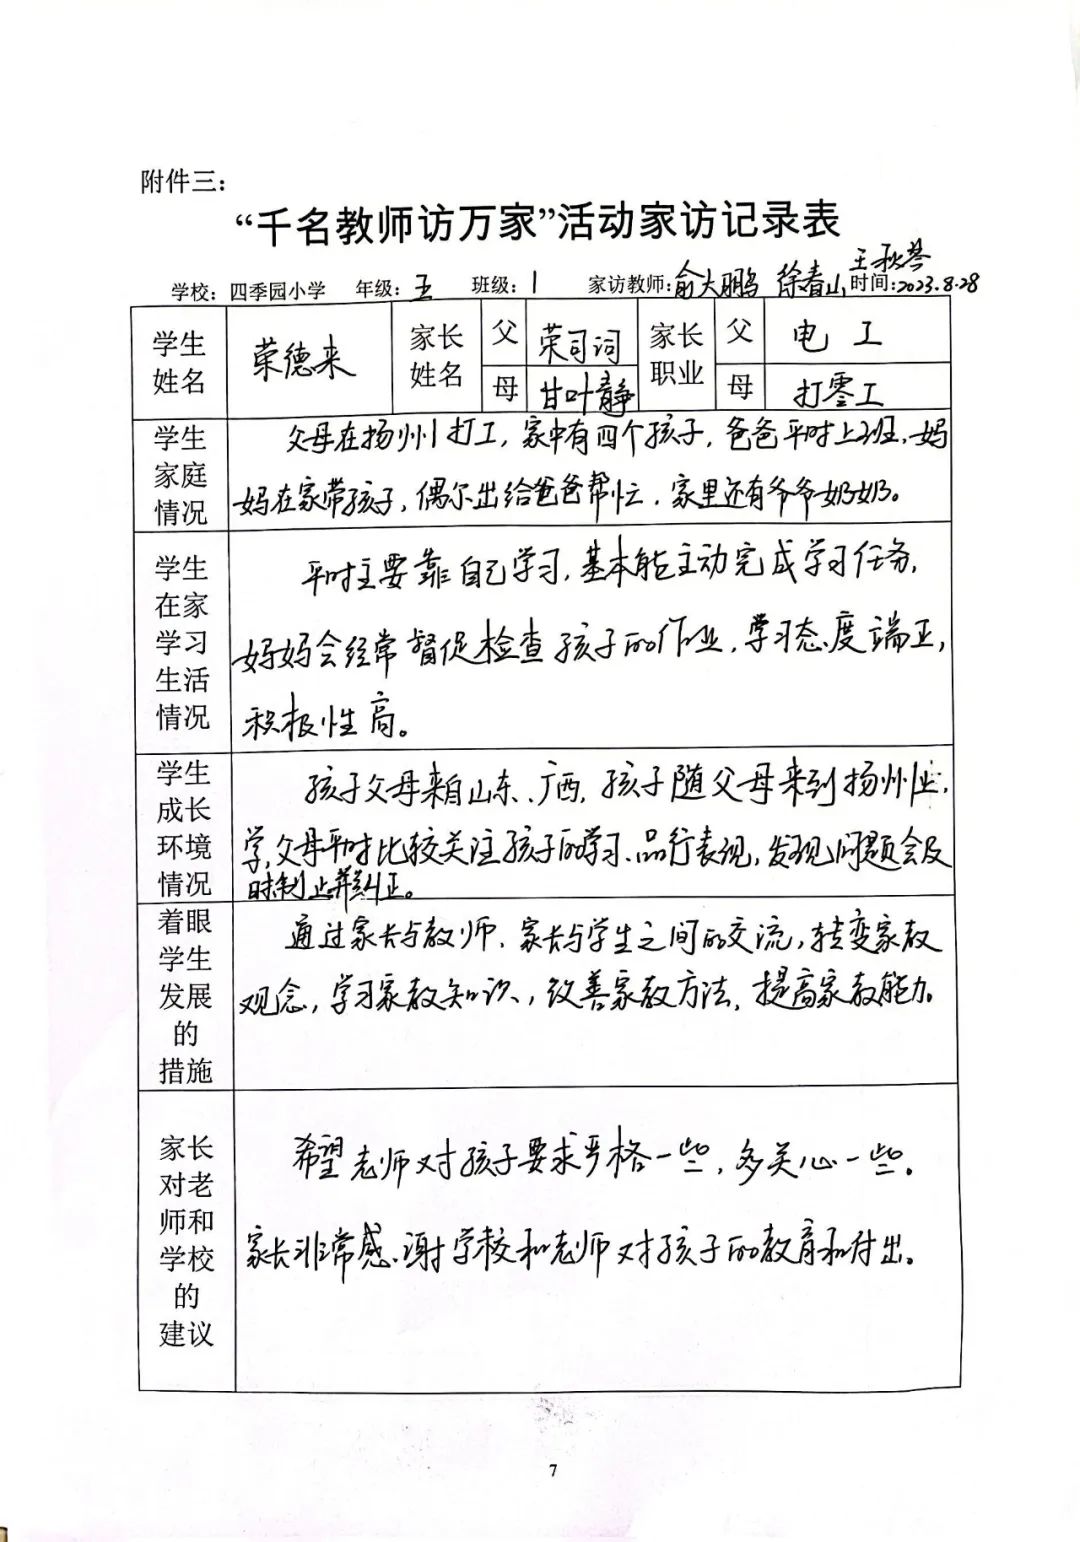 附件三：
“千名教师访万家”活动家访记录表
学校：四季园小学 年级：五 班级：1 家访教师：俞大鹏 徐春山 王秋琴 时间：2023.8.28
学生姓名 荣德来 家长姓名 父 荣司词 家长职业 父 电工
母 甘叶静 母 打零工
学生
家庭
情况
父母在扬州打工，家中有四个孩子，爸爸平时上班，妈
妈在家带孩子，偶尔出给爸爸帮忙，家里还有爷爷奶奶。
学生
在家
学习
生活
情况
平时主要靠自己学习，基本能主动完成学习任务，
妈妈会经常督促检查孩子的作业，学习态度端正，
积极性高。
学生
成长
环境
情况
孩子父母来自山东、广西，孩子随父母来到扬州上
学，父母平时比较关注孩子的学习、品行表现，发现问题会及
时制止并纠正。
着眼
学生
发展
的
措施
通过家长与教师、家长与学生之间的交流，转变家教
观念，学习家教知识，改善家教方法，提高家教能力。
家长
对老
师和
学校
的
建议
希望老师对孩子要求严格一些，多关心一些。
家长非常感谢学校和老师对孩子的教育和付出。
7